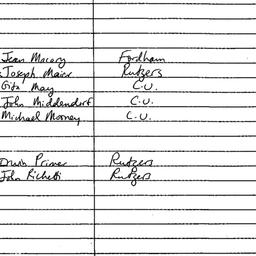 Jean Macary Fordham
Joseph Maier Rutgers
Gita May C.U.
John Middendorf C.U.
Michael Mooney C.U.
Irwin Primer Rutgers
John Richetti Rutgers